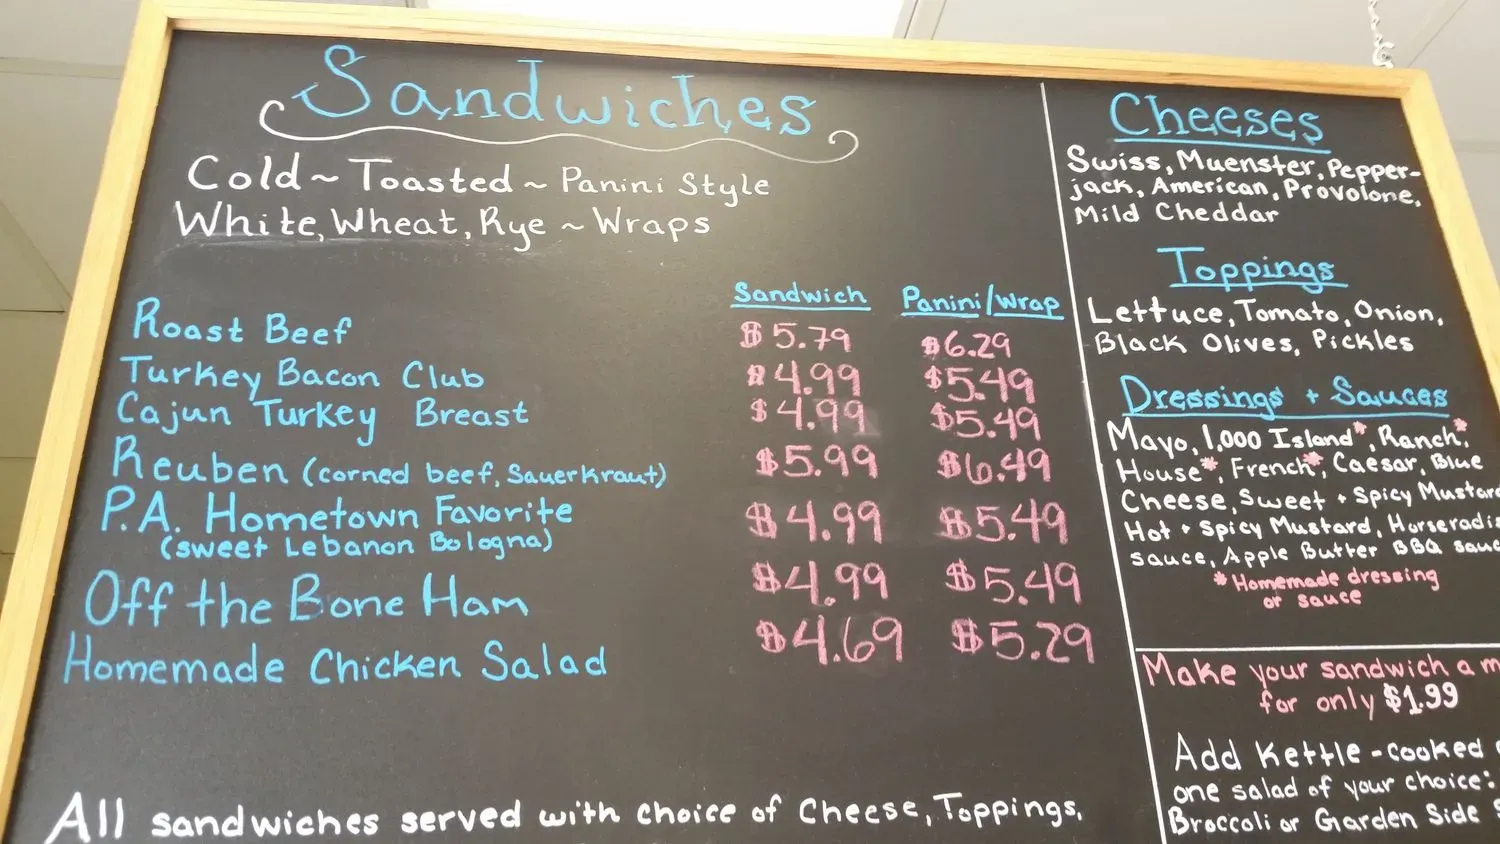 Sandwiches
Cold ~ Toasted ~ Panini Style
White, Wheat, Rye ~ Wraps
Sandwich Panini/Wrap
Roast Beef $5.79 $6.29
Turkey Bacon Club $4.99 $5.49
Cajun Turkey Breast $4.99 $5.49
Reuben (corned beef, Sauerkraut) $5.99 $6.49
P.A. Hometown Favorite $4.99 $5.49
(sweet Lebanon Bologna)
Off the Bone Ham $4.99 $5.49
Homemade Chicken Salad $4.69 $5.29
All sandwiches served with choice of Cheese, Toppings,
Cheeses
Swiss, Muenster, Pepper-
jack, American, Provolone,
Mild Cheddar
Toppings
Lettuce, Tomato, Onion,
Black Olives, Pickles
Dressings + Sauces
Mayo, 1,000 Island*, Ranch*,
House*, French*, Caesar, Blue
Cheese, Sweet + Spicy Mustard
Hot + Spicy Mustard, Horseradis
sauce, Apple Butter BBQ sauc
*Homemade dressing
or sauce
Make your sandwich a m
for only $1.99
Add Kettle-cooked
one salad of your choice:
Broccoli or Garden Side